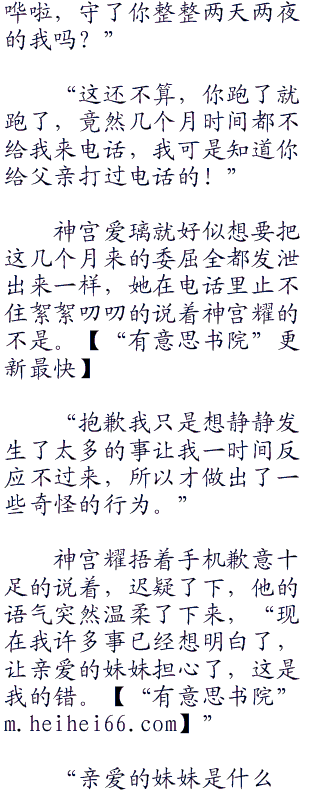 哗啦，守了你整整两天两夜
的我吗？”
“这还不算，你跑了就
跑了，竟然几个月时间都不
给我来电话，我可是知道你
给父亲打过电话的！”
神宫爱璃就好似想要把
这几个月来的委屈全都发泄
出来一样，她在电话里止不
住絮絮叨叨的说着神宫耀的
不是。【“有意思书院”更
新最快】
“抱歉我只是想静静发
生了太多的事让我一时间反
应不过来，所以才做出了一
些奇怪的行为。”
神宫耀捂着手机歉意十
足的说着，迟疑了下，他的
语气突然温柔了下来，“现
在我许多事已经想明白了，
让亲爱的妹妹担心了，这是
我的错。【“有意思书院”
m.heihei66.com】”
“亲爱的妹妹是什么